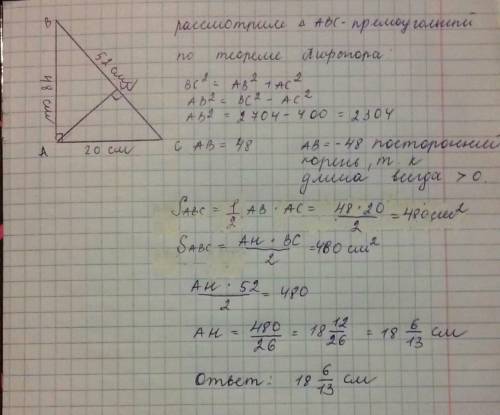 рассмотрим △ ABC - прямоугольный
по теореме Пифагора:
BC² = AB² + AC²
AB² = BC² - AC²
AB² = 2704 - 400 = 2304
AB = 48 AB = -48 посторонний
корень, т. к
длина всегда > 0.
B
52 см
48 см
A
20 см
C
S ABC = 1/2 AB · AC = 48 · 20/2 = 480 см²
S ABC = AH · BC/2 = 480 см²
AH · 52/2 = 480
AH = 480/26 = 18 12/26 = 18 6/13 см
Ответ: 18 6/13 см